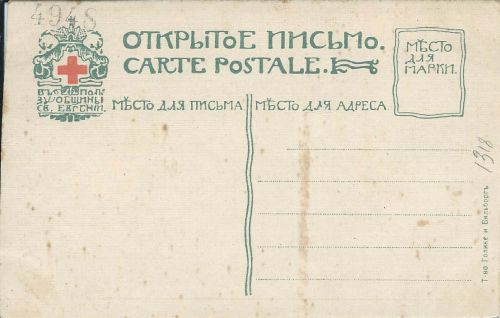 4948
ОТКРЫТОЕ ПИСЬМО.
CARTE POSTALE.
МѢСТО
ДЛЯ
МАРКИ.
ВЪ ПОЛЬ
ЗУ ОБЩИНЫ
СВ. ЕВГЕНІИ.
МѢСТО ДЛЯ ПИСЬМА
МѢСТО ДЛЯ АДРЕСА
1318
Т-во Голике и Вильборгъ